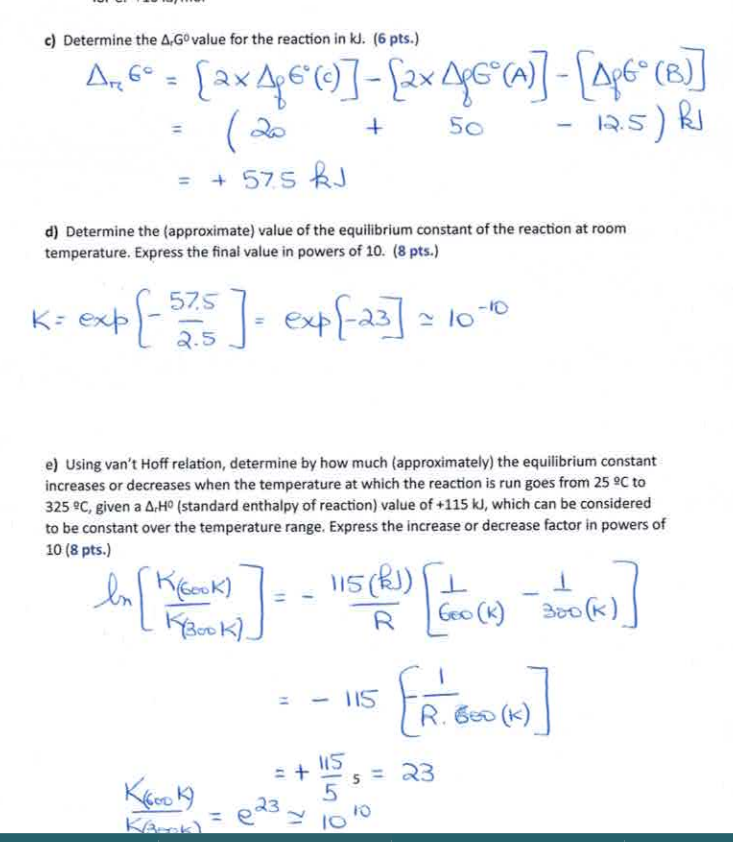 c) Determine the ΔᵣG⁰ value for the reaction in kJ. (6 pts.)
Δᵣ G° = [2x Δf G°(C)] - [2x Δf G°(A)] - [Δf G° (B)]
= ( 20 + 50 - 12.5 ) kJ
= + 57.5 kJ
d) Determine the (approximate) value of the equilibrium constant of the reaction at room
temperature. Express the final value in powers of 10. (8 pts.)
K = exp [- 57.5 / 2.5 ] = exp [-23] ≃ 10⁻¹⁰
e) Using van't Hoff relation, determine by how much (approximately) the equilibrium constant
increases or decreases when the temperature at which the reaction is run goes from 25 ºC to
325 ºC, given a ΔᵣH⁰ (standard enthalpy of reaction) value of +115 kJ, which can be considered
to be constant over the temperature range. Express the increase or decrease factor in powers of
10 (8 pts.)
ln [ K(600K) / K(300K) ] = - 115 (kJ) / R [ 1 / 600 (K) - 1 / 300 (K) ]
= - 115 [ - 1 / R. 600 (K) ]
= + 115 / 5 = 23
K(600K) / K(300K) = e²³ ≃ 10¹⁰